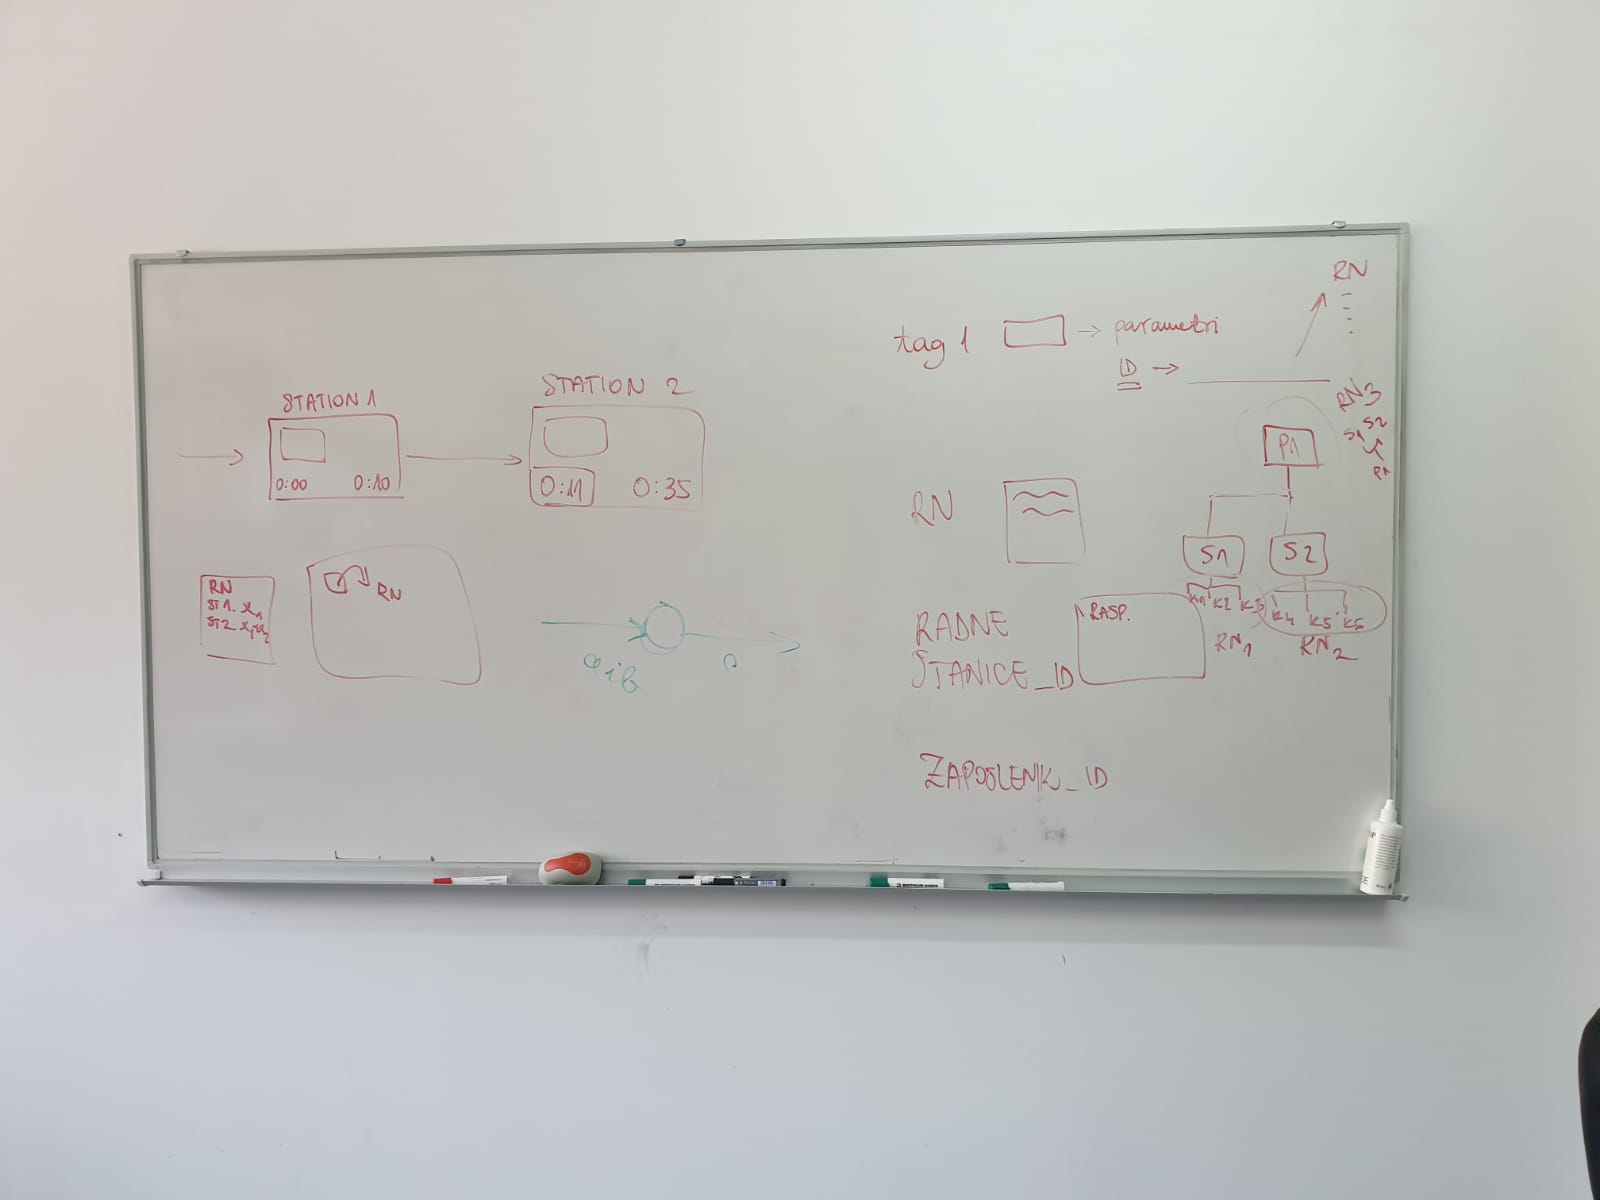 STATION 1
0:00 0:10
STATION 2
0:11 0:35
RN
ST1.
ST2
RN
a i b
tag 1 → parametri
ID →
RN
RN3
S1 S2
P1
P1
S1 S2
K1 K2 K3
K4 K5 K6
RN1 RN2
RN
RADNE
STANICE_ID
RASP.
ZAPOSLENIK_ID